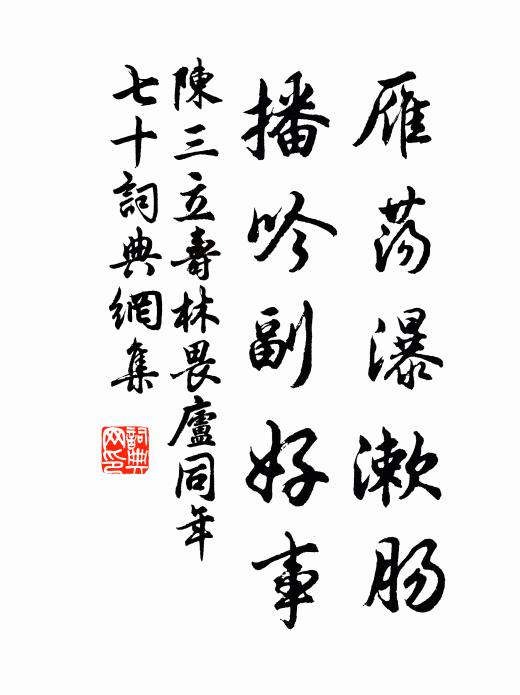 雁荡瀑漱肠
播吟副好事
陳三立壽林畏廬同年
七十詞典網集
詞典网印